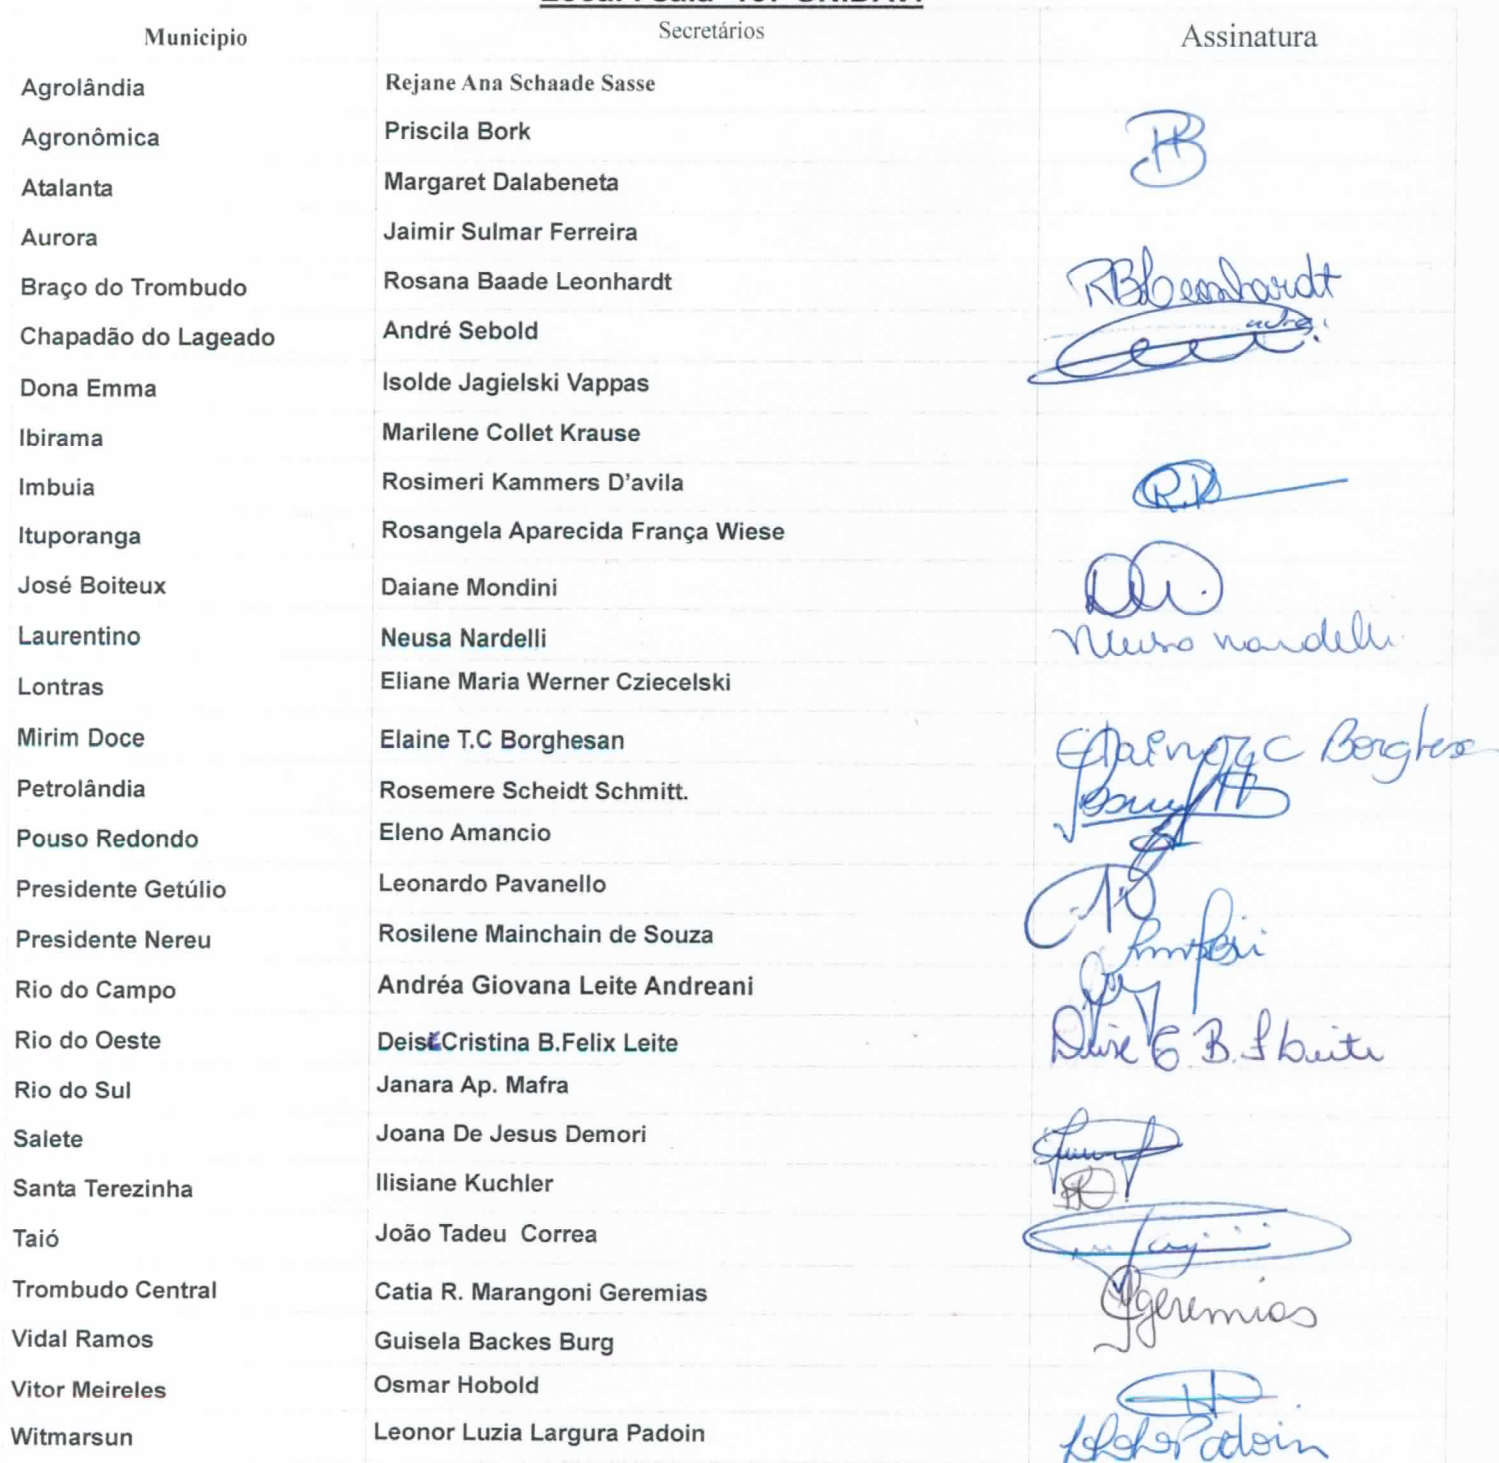 Municipio Secretários Assinatura
Agrolândia Rejane Ana Schaade Sasse
Agronômica Priscila Bork PB
Atalanta Margaret Dalabeneta
Aurora Jaimir Sulmar Ferreira
Braço do Trombudo Rosana Baade Leonhardt RBLeonhardt
Chapadão do Lageado André Sebold
Dona Emma Isolde Jagielski Vappas
Ibirama Marilene Collet Krause
Imbuia Rosimeri Kammers D'avila
Ituporanga Rosangela Aparecida França Wiese
José Boiteux Daiane Mondini
Laurentino Neusa Nardelli Neusa Nardelli
Lontras Eliane Maria Werner Cziecelski
Mirim Doce Elaine T.C Borghesan Elaine T C Borghesan
Petrolândia Rosemere Scheidt Schmitt.
Pouso Redondo Eleno Amancio
Presidente Getúlio Leonardo Pavanello
Presidente Nereu Rosilene Mainchain de Souza
Rio do Campo Andréa Giovana Leite Andreani
Rio do Oeste Deise Cristina B.Felix Leite Deise C. B. F Leite
Rio do Sul Janara Ap. Mafra
Salete Joana De Jesus Demori
Santa Terezinha Ilisiane Kuchler
Taió João Tadeu Correa
Trombudo Central Catia R. Marangoni Geremias Geremias
Vidal Ramos Guisela Backes Burg
Vitor Meireles Osmar Hobold
Witmarsun Leonor Luzia Largura Padoin Padoin